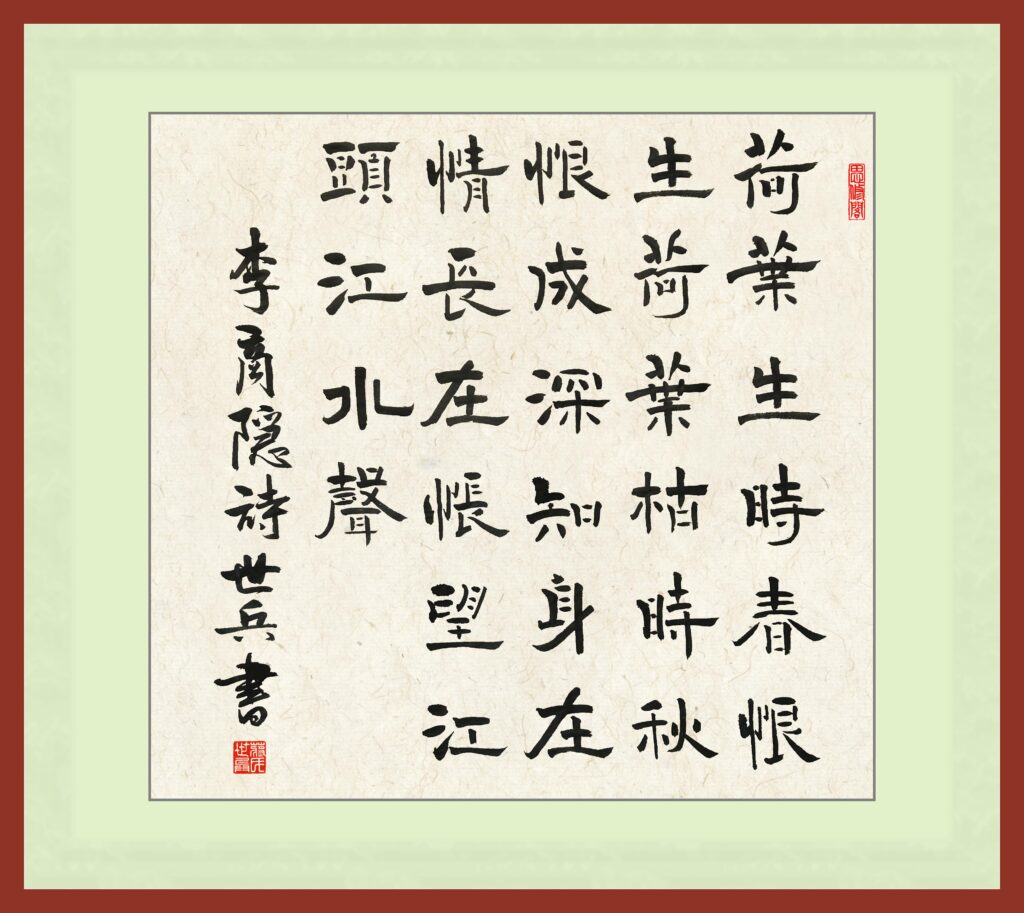 荷葉生時春恨
生荷葉枯時秋
恨成深知身在
情長在悵望江
頭江水聲
李商隐詩世兵書